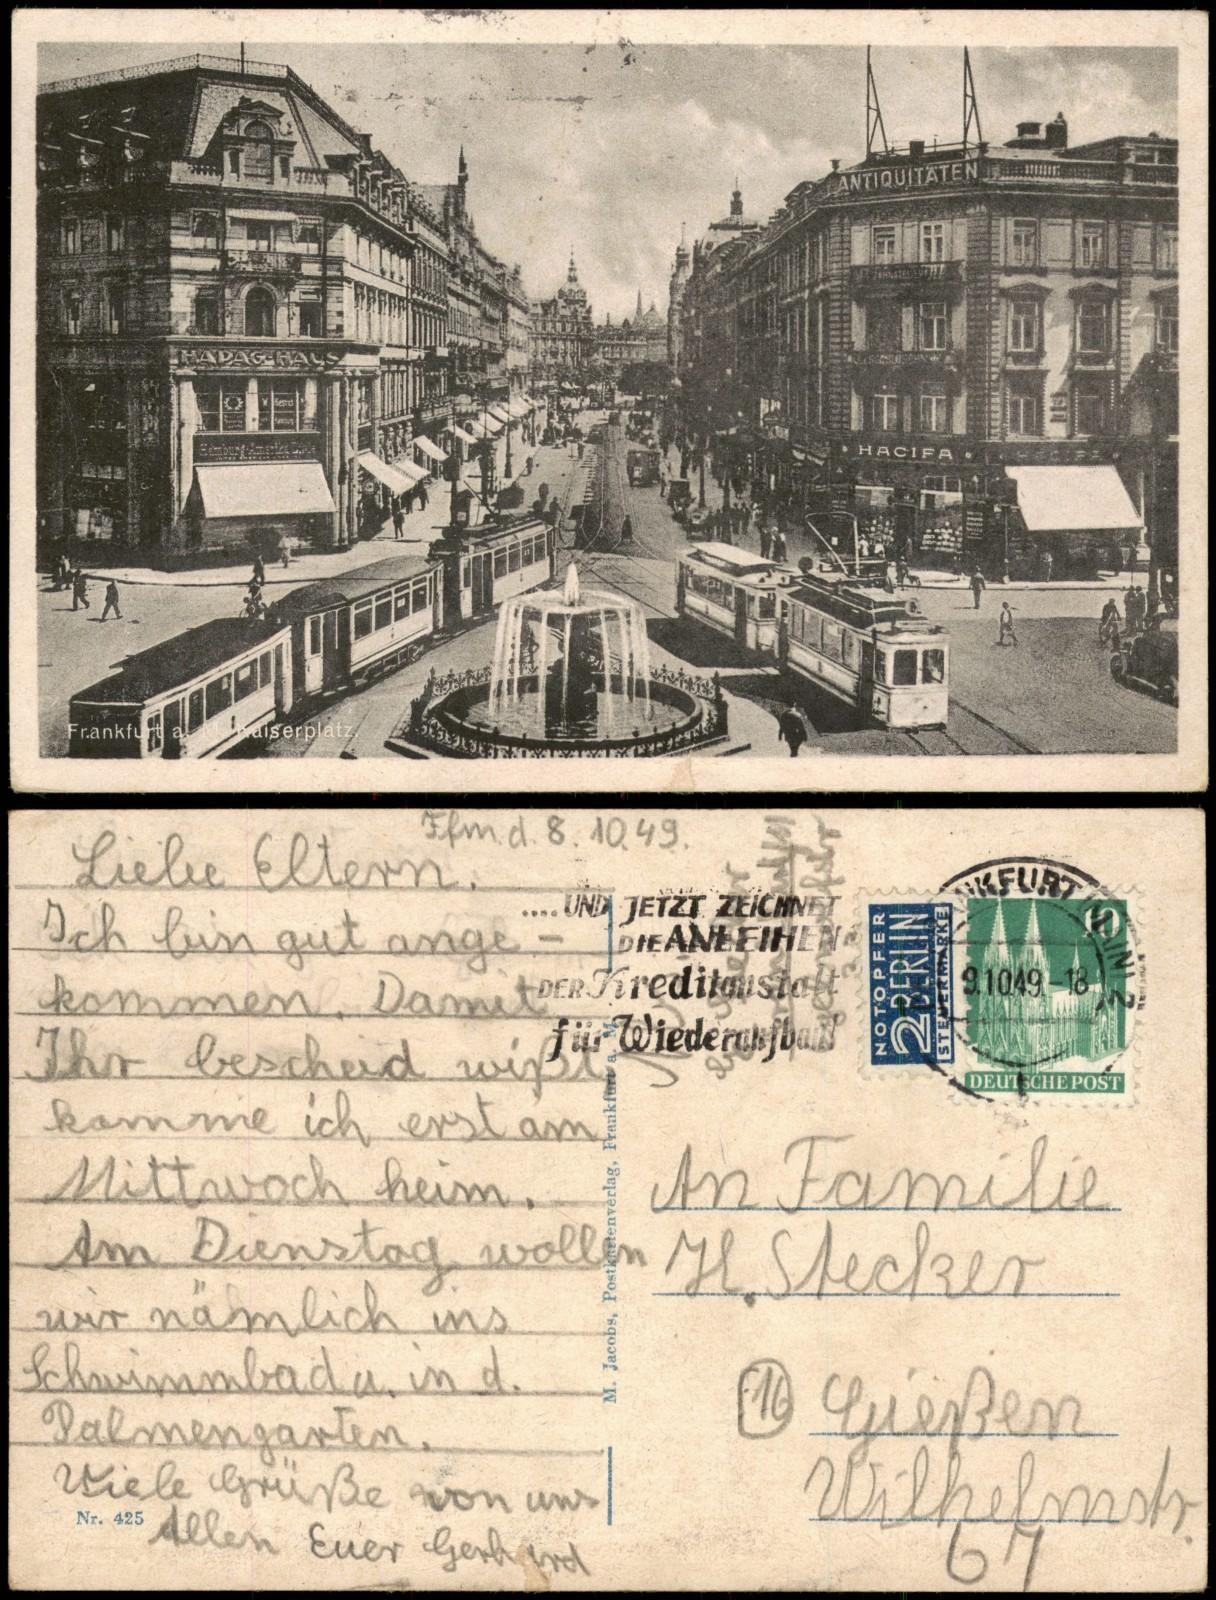 ANTIQUITÄTEN
HAPAG-HAUS
HACIFA
Frankfurt a. M. Kaiserplatz.
Ffm. d. 8. 10. 49.
Liebe Eltern.
Ich bin gut ange-
kommen. Damit
Ihr bescheid wißt
komme ich erst am
Mittwoch heim.
Am Dienstag wollen
wir nämlich ins
Schwimmbad u. in d.
Palmengarten.
Viele Grüße von uns
Allen Euer Gerhard
Nr. 425
M. Jacobs, Postkartenverlag, Frankfurt a. M.
.... UND JETZT ZEICHNET
DIE ANLEIHEN
DER Kreditanstalt
für Wiederaufbau
NOTOPFER
2 BERLIN
STEUERMARKE
FRANKFURT (MAIN) 2
9.10.49 -18
10
DEUTSCHE POST
An Familie
H. Stecker
(16) Gießen
Wilhelmstr.
67